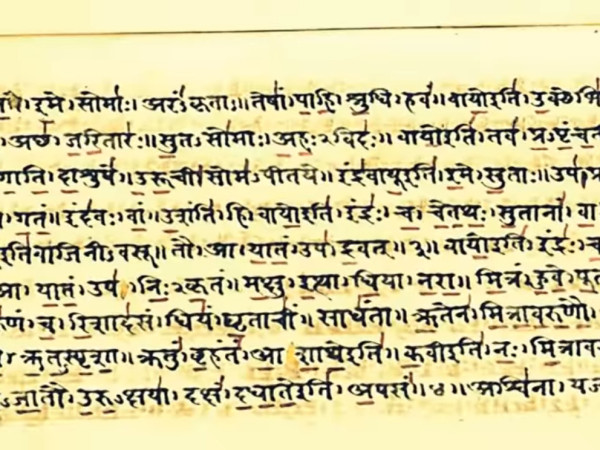 इमे। सोमाः। अरंऽकृताः॥ तेषां। पाहि। श्रुधि। हवं॥ वायोइति। उक्थेभि
अछ। जरितारः॥ सुतऽसोमाः। अहःऽविदः॥ वायोइति। तव। प्रऽपृंचती
गाति। दाशुषे॥ उरूची। सोमऽपीतये॥ इंद्रवायूइति। इमे। सुताः॥ उप। प्र
गतं॥ इंदवः। वां। उशंति। हि। वायोइति। इंद्रः। च। चेतथः। सुतानां। वा
इतिवाजिनीऽवसू॥ तौ। आ। यातं। उप। द्रवत्॥३॥ वायोइति। इंद्रः। च
आ। यातं। उप। निःऽकृतं॥ मक्षु। इत्था। धिया। नरा॥ मित्रं। हुवे। पूत
रुणं। च। रिशादसं। धियं। घृताचीं॥ साधंता॥ ऋतेन। मित्रावरुणौ।
ऋतऽस्पृशा॥ क्रतुं। बृहंतं। आशाथेइति॥ कवीइति। नः। मित्राव
ऽजातौ। उरुऽक्षया। दक्षं। दधातेइति। अपसं॥४॥ अश्विना। यज